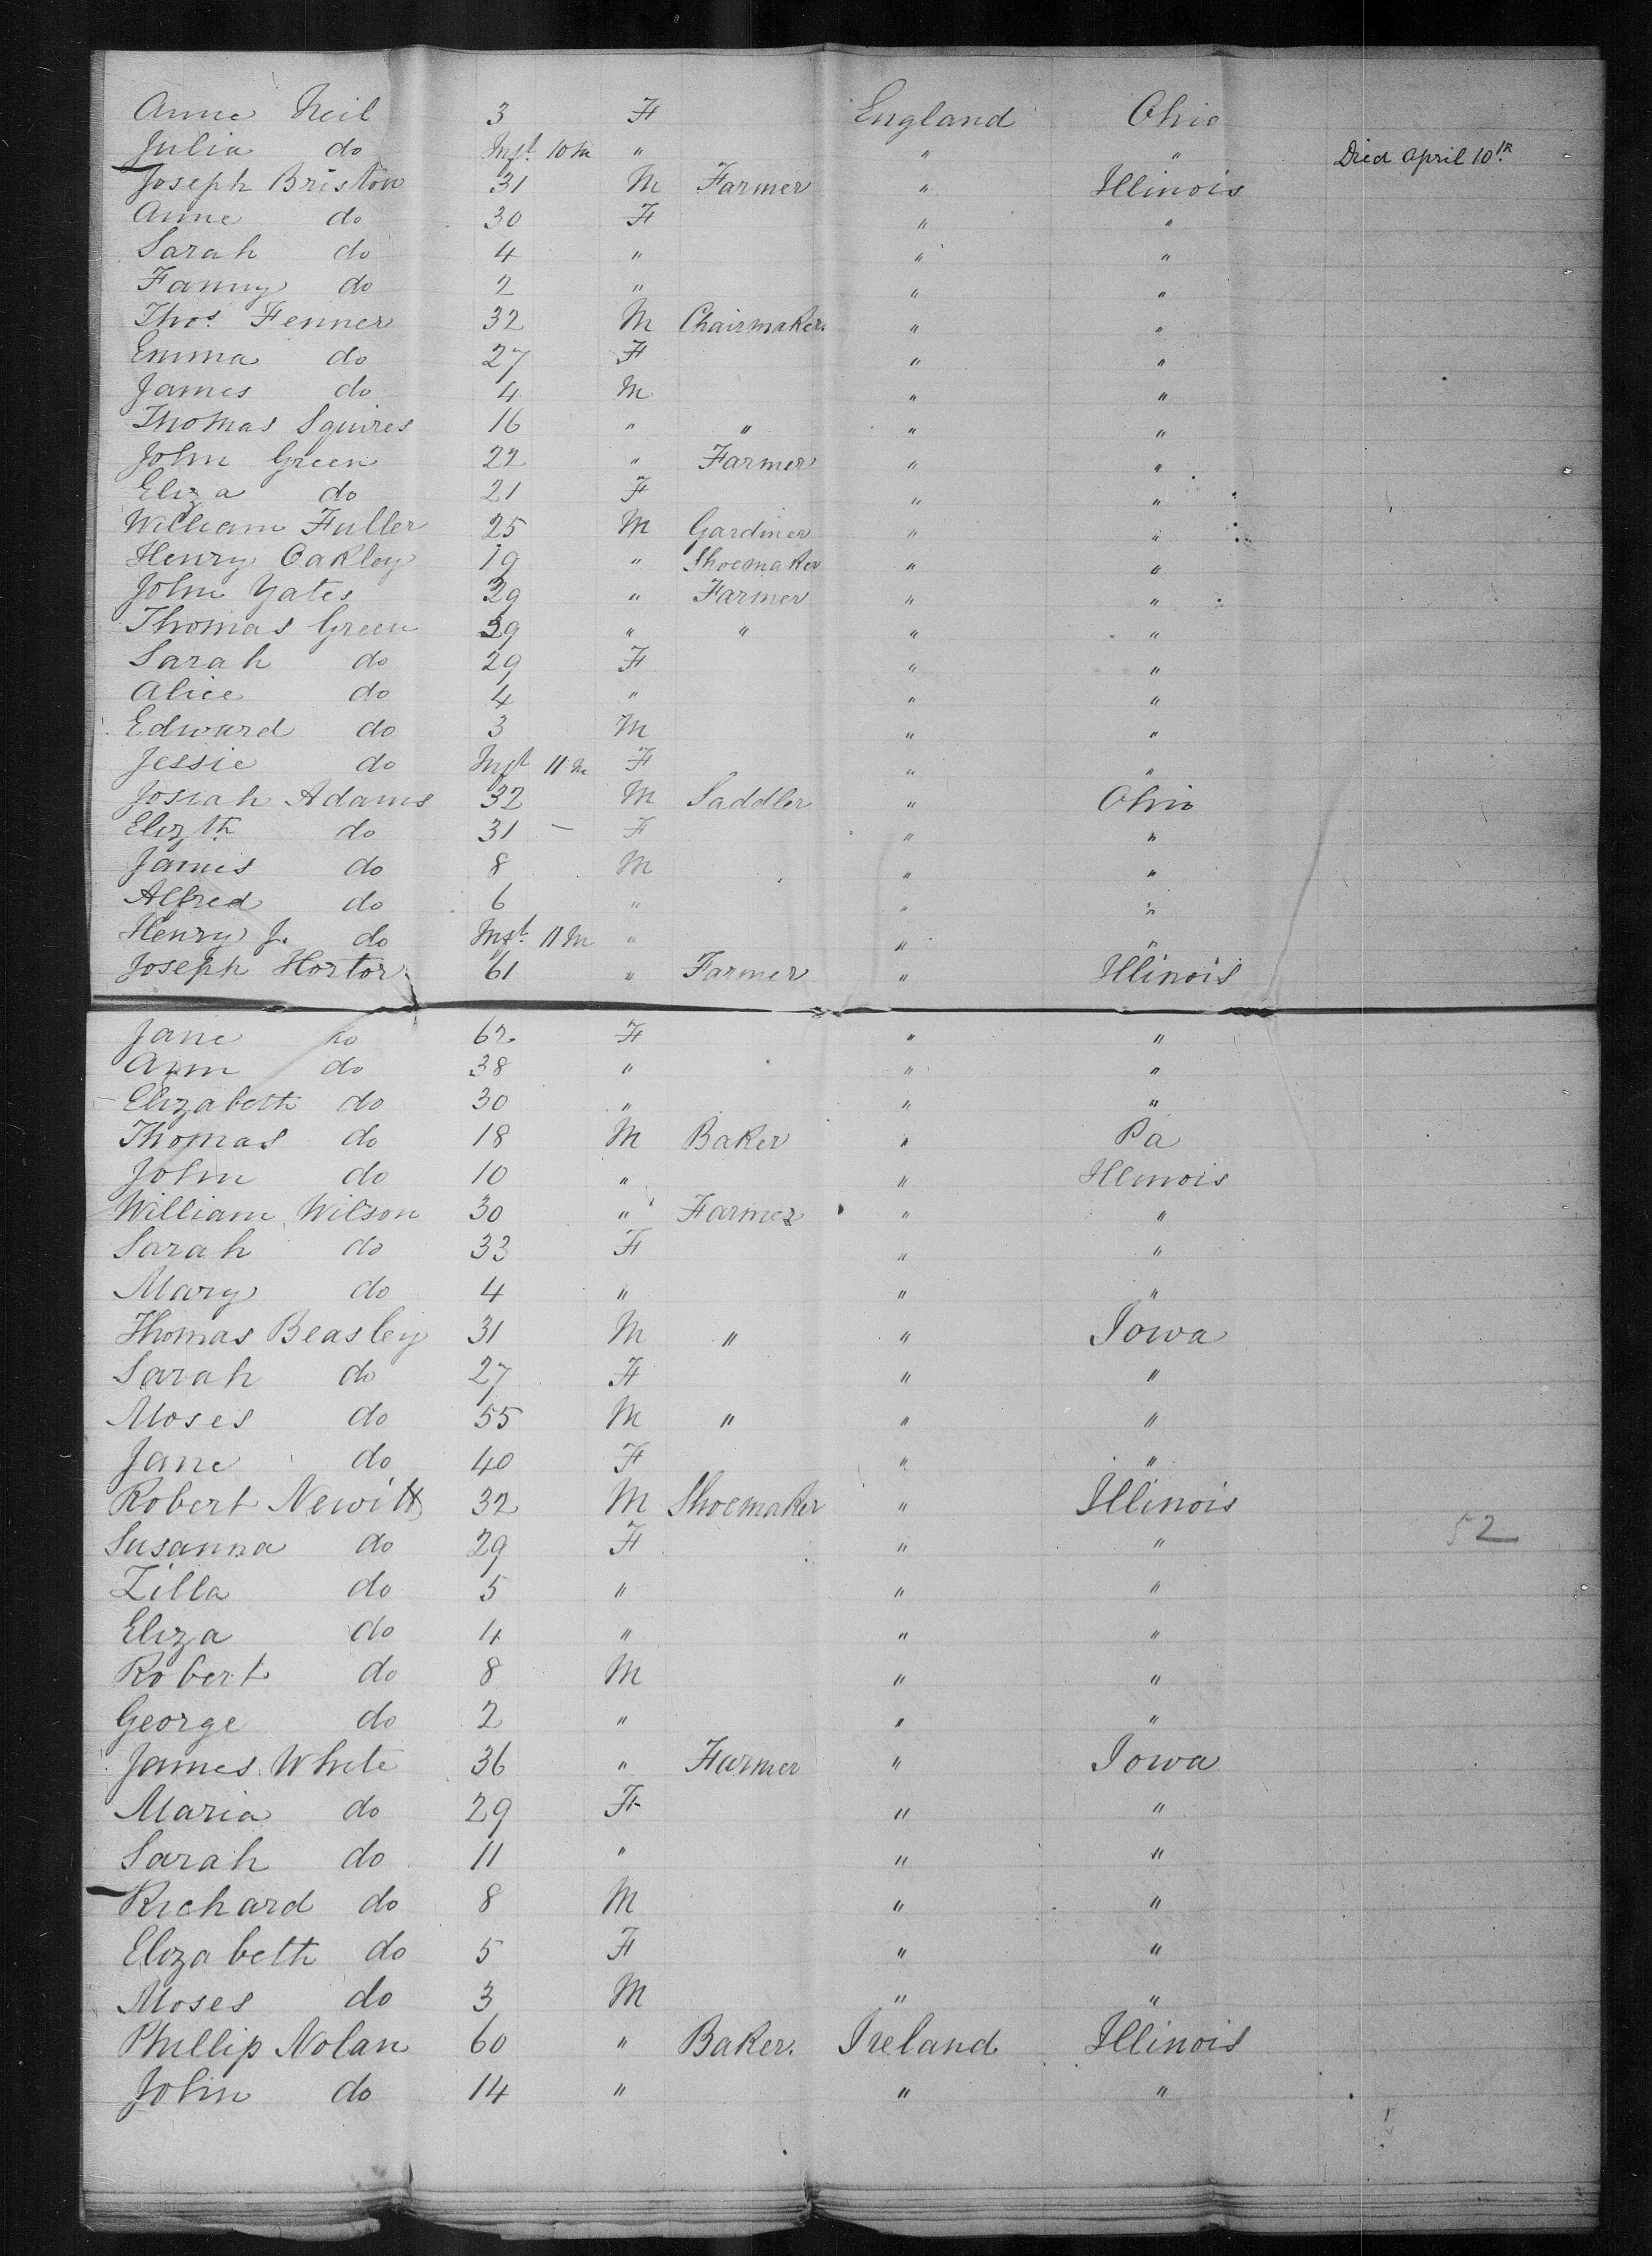 Anne Neil 3 F England Ohio
Julia do Inft 10 m " " " Died April 10th
Joseph Briston 31 M Farmer " Illinois
Anne do 30 F " "
Sarah do 4 " " "
Fanny do 2 " " "
Thos. Fenner 32 M Chairmaker " "
Emma do 27 F " "
James do 4 M " "
Thomas Squires 16 " " " "
John Green 22 " Farmer " "
Eliza do 21 F " "
William Fuller 25 M Gardiner " "
Henry Oakley 19 " Shoemaker " "
John Yates 29 " Farmer " "
Thomas Green 39 " " " "
Sarah do 29 F " "
Alice do 4 " " "
Edward do 3 M " "
Jessie do Inft 11 m F " "
Josiah Adams 32 M Saddler " Ohio
Elizth do 31 – F " "
James do 8 M " "
Alfred do 6 " " "
Henry J. do Inft 11 m " " "
Joseph Horton 61 " Farmer " Illinois
Jane do 62 F " "
Ann do 38 " " "
Elizabeth do 30 " " "
Thomas do 18 M Baker " Pa
John do 10 " " Illinois
William Wilson 30 " Farmer " "
Sarah do 33 F " "
Mary do 4 " " "
Thomas Beasley 31 M " " Iowa
Sarah do 27 F " "
Moses do 55 M " " "
Jane do 40 F " "
Robert Newitt 32 M Shoemaker " Illinois
Susanna do 29 F " " 52
Zilla do 5 " " "
Eliza do 4 " " "
Robert do 8 M " "
George do 2 " " "
James White 36 " Farmer " Iowa
Maria do 29 F " "
Sarah do 11 " " "
Richard do 8 M " "
Elizabeth do 5 F " "
Moses do 3 M " "
Phillip Nolan 60 " Baker. Ireland Illinois
John do 14 " " "